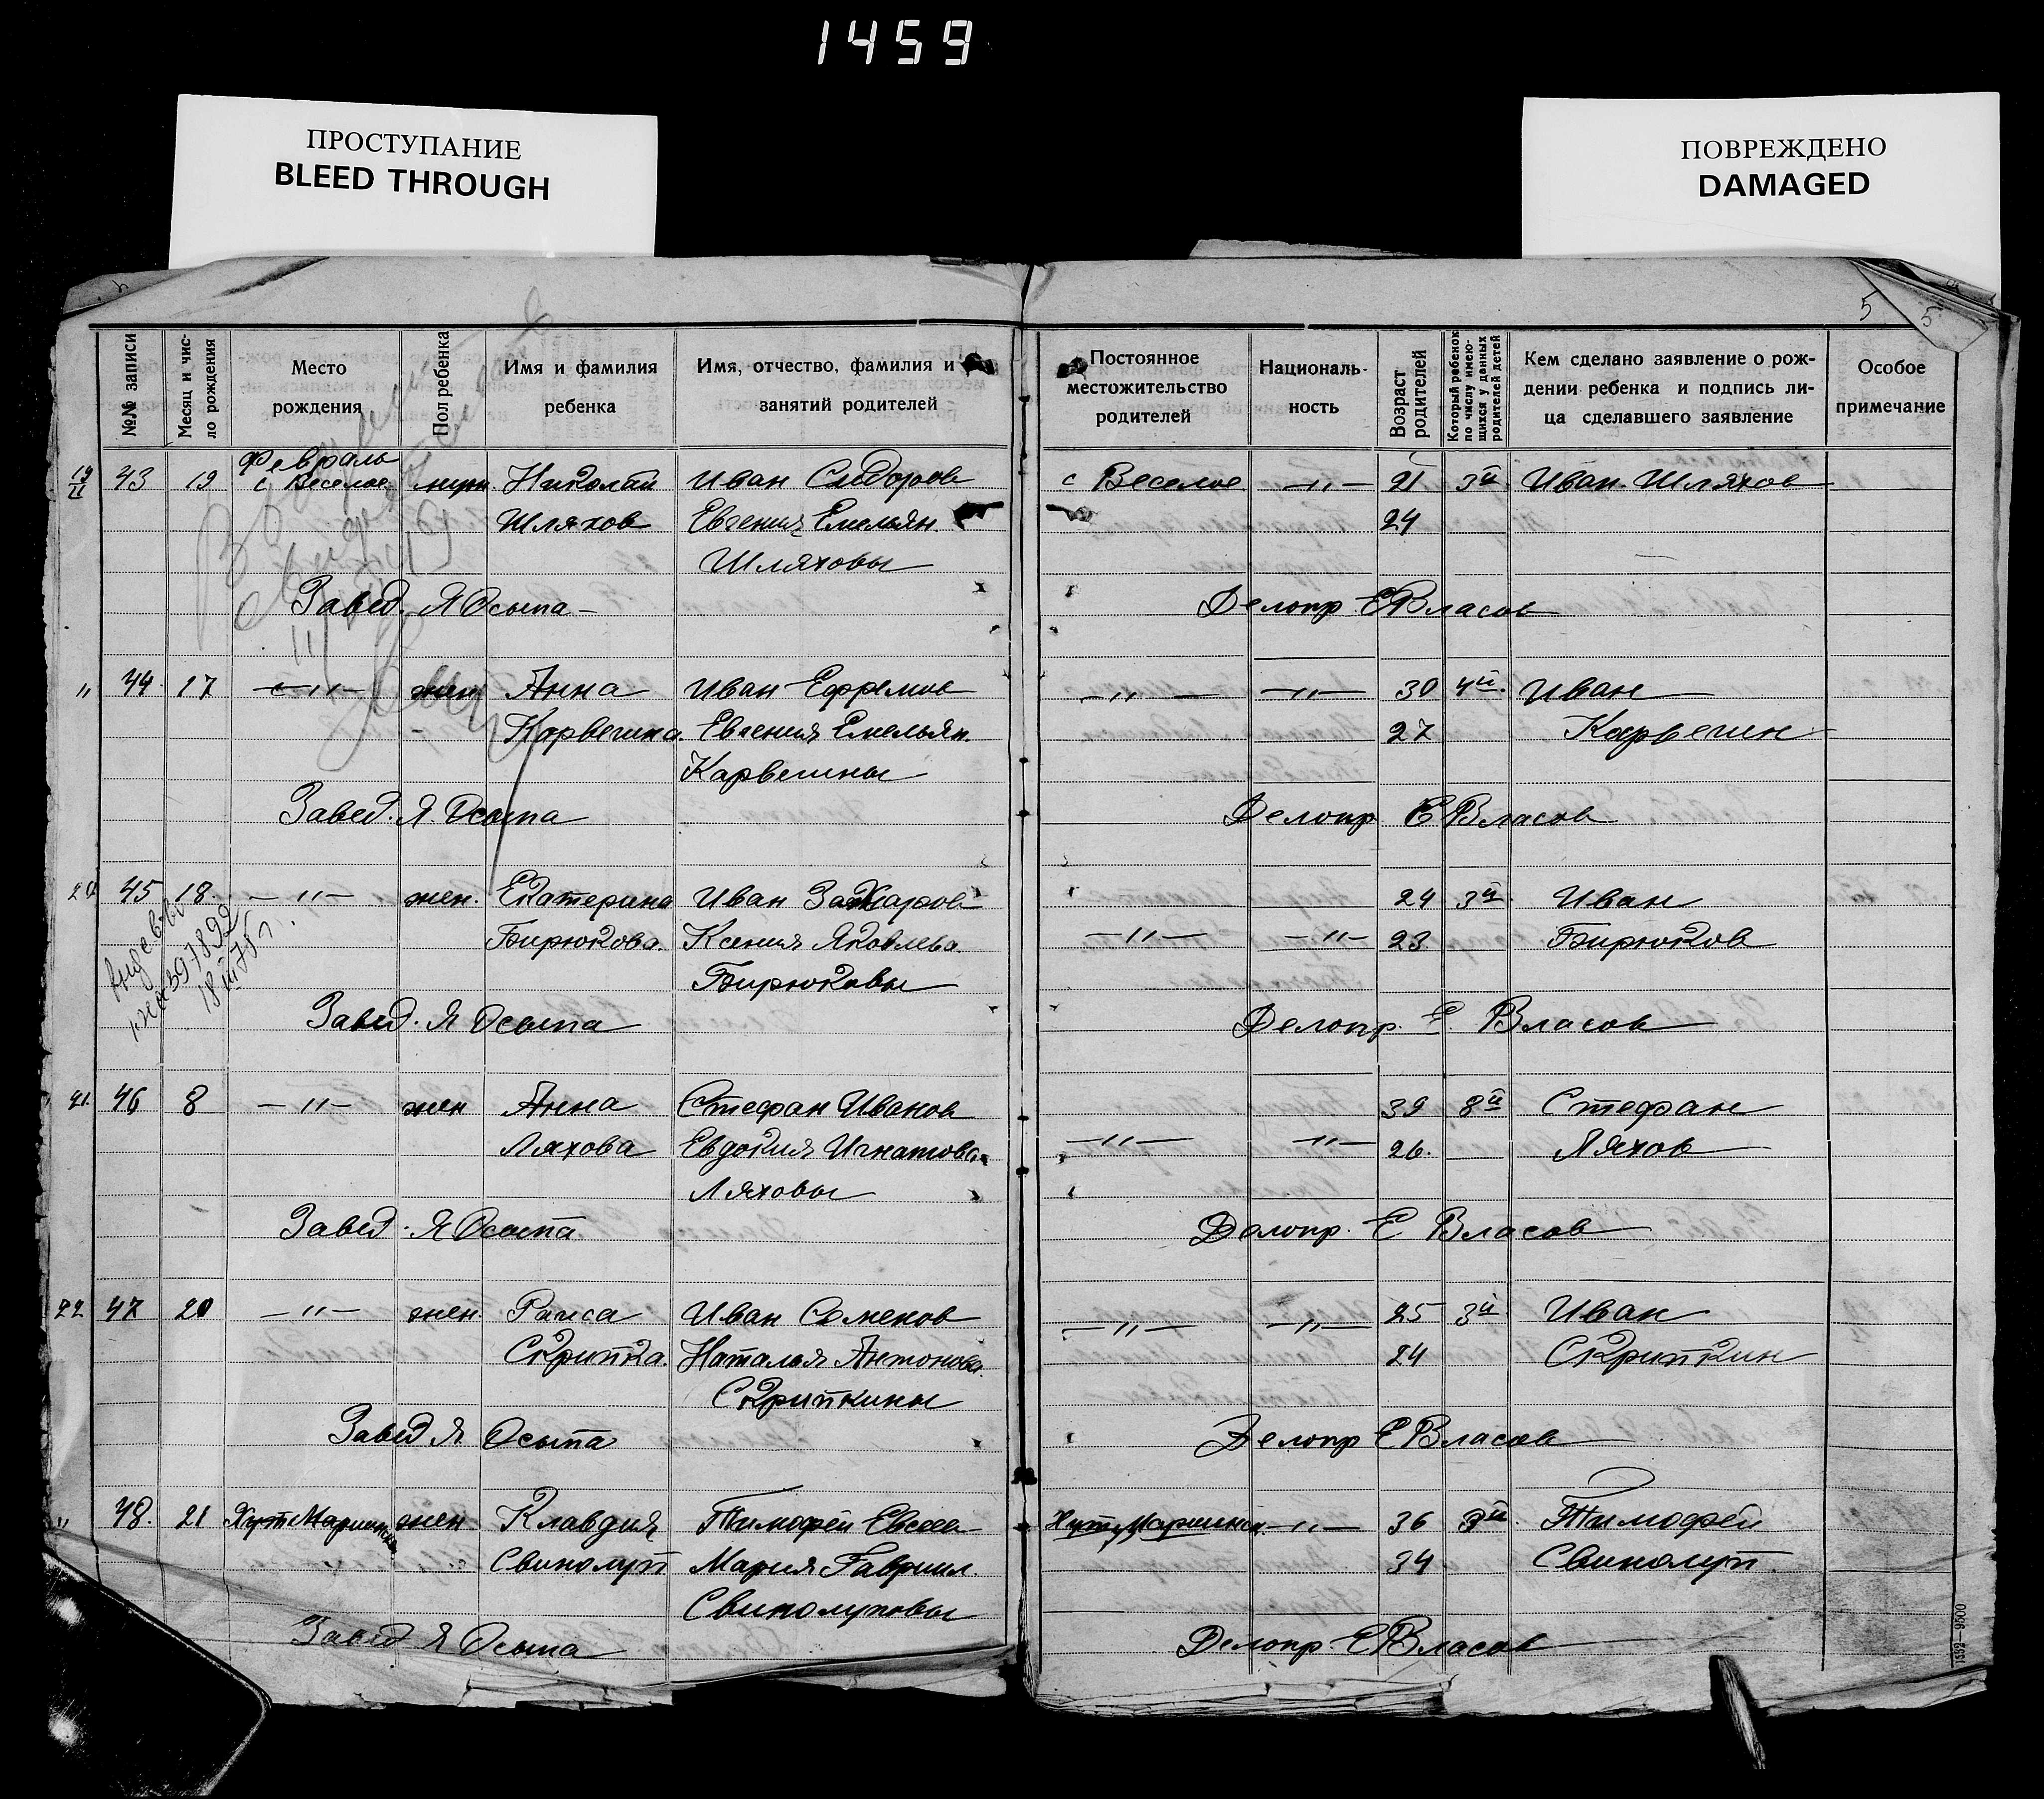 1459
ПРОСТУПАНИЕ
BLEED THROUGH
ПОВРЕЖДЕНО
DAMAGED
5
5
№№ записи
Месяц и чис-
ло рождения
Место
рождения
Пол ребенка
Имя и фамилия
ребенка
Имя, отчество, фамилия и
занятий родителей
Постоянное
местожительство
родителей
Националь-
ность
Возраст
родителей
Который ребенок
по числу имею-
щихся у данных
родителей детей
Кем сделано заявление о рож-
дении ребенка и подпись ли-
ца сделавшего заявление
Особое
примечание
Февраль
19/II 43 19 с Веселое муж. Николай Иван Сидоров с Веселое —"— 21 3й Иван Шляхов
Шляхов Евгения Емельян. 24
Шляховы
Завед. Я Осыпа Делопр. Е Власов
" 44 17 —"— жен Анна Иван Ефремов —"— —"— 30 4й. Иван
Карвегина. Евгения Емельян. 27 Карвегин
Карвегины
Завед. Я. Осыпа Делопр Е Власов
45 18. —"— жен. Екатерина Иван Захаров 24 3й Иван
Бирюкова. Ксения Яковлева. —"— —"— 23 Бирюков
Бирюковы
397892
18 III 75 г.
Завед. Я Осыпа Делопр. Е. Власов
46 8 —"— жен Анна Стефан Иванов 39 8й Стефан
Ляхова Евдокия Игнатова. —"— —"— 26. Ляхов
Ляховы
Завед. Я Осыпа Делопр. Е Власов
22 47 20 —"— жен. Раиса Иван Семенов —"— —"— 25 3й Иван
Скрипка. Наталья Антонова. 24 Скрипкин
Скрипкины
Завед Я Осыпа Делопр Е Власов
" 48. 21 жен Клавдия Тимофей Евсеев —"— 36 3й Тимофей
Свинолуп Мария Гавриил. 34 Свинолуп.
Свинолуповы
Завед Я Осыпа Делопр. Е Власов
1332—9500